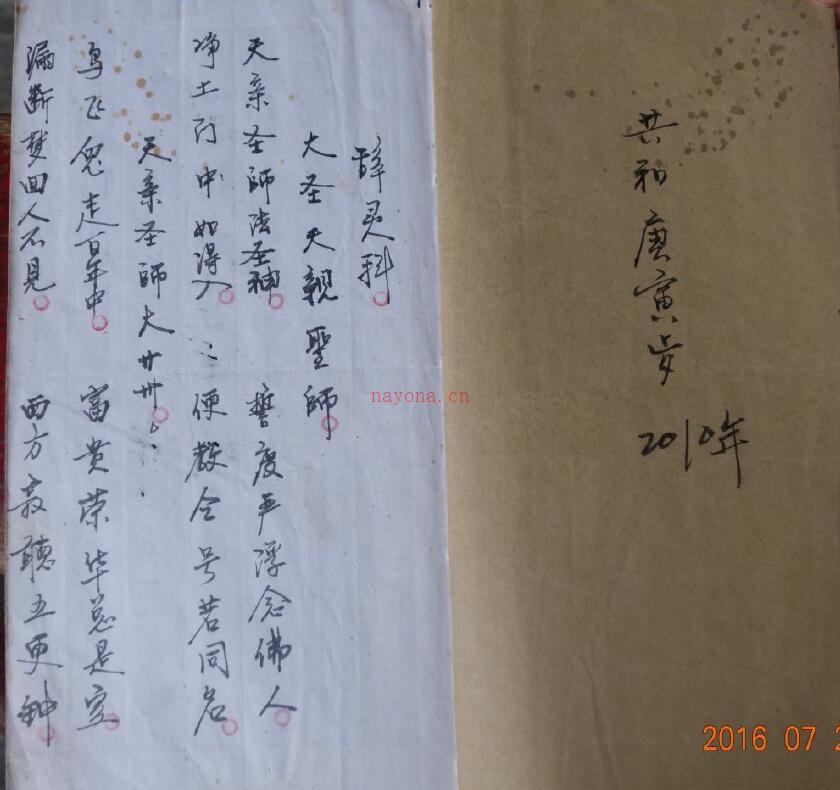 共和庚寅岁
2010年
辞灵科
大圣天親聖師
天亲圣师法圣神 誓度阎浮念佛人
净土门中如得入 : 便教令号若同名
天亲圣师大廿卅
鸟飞兔走百年中 富贵荣华总是空
漏断梦回人不見 西方敦聽五更钟
nayona.cn
2016 07 2